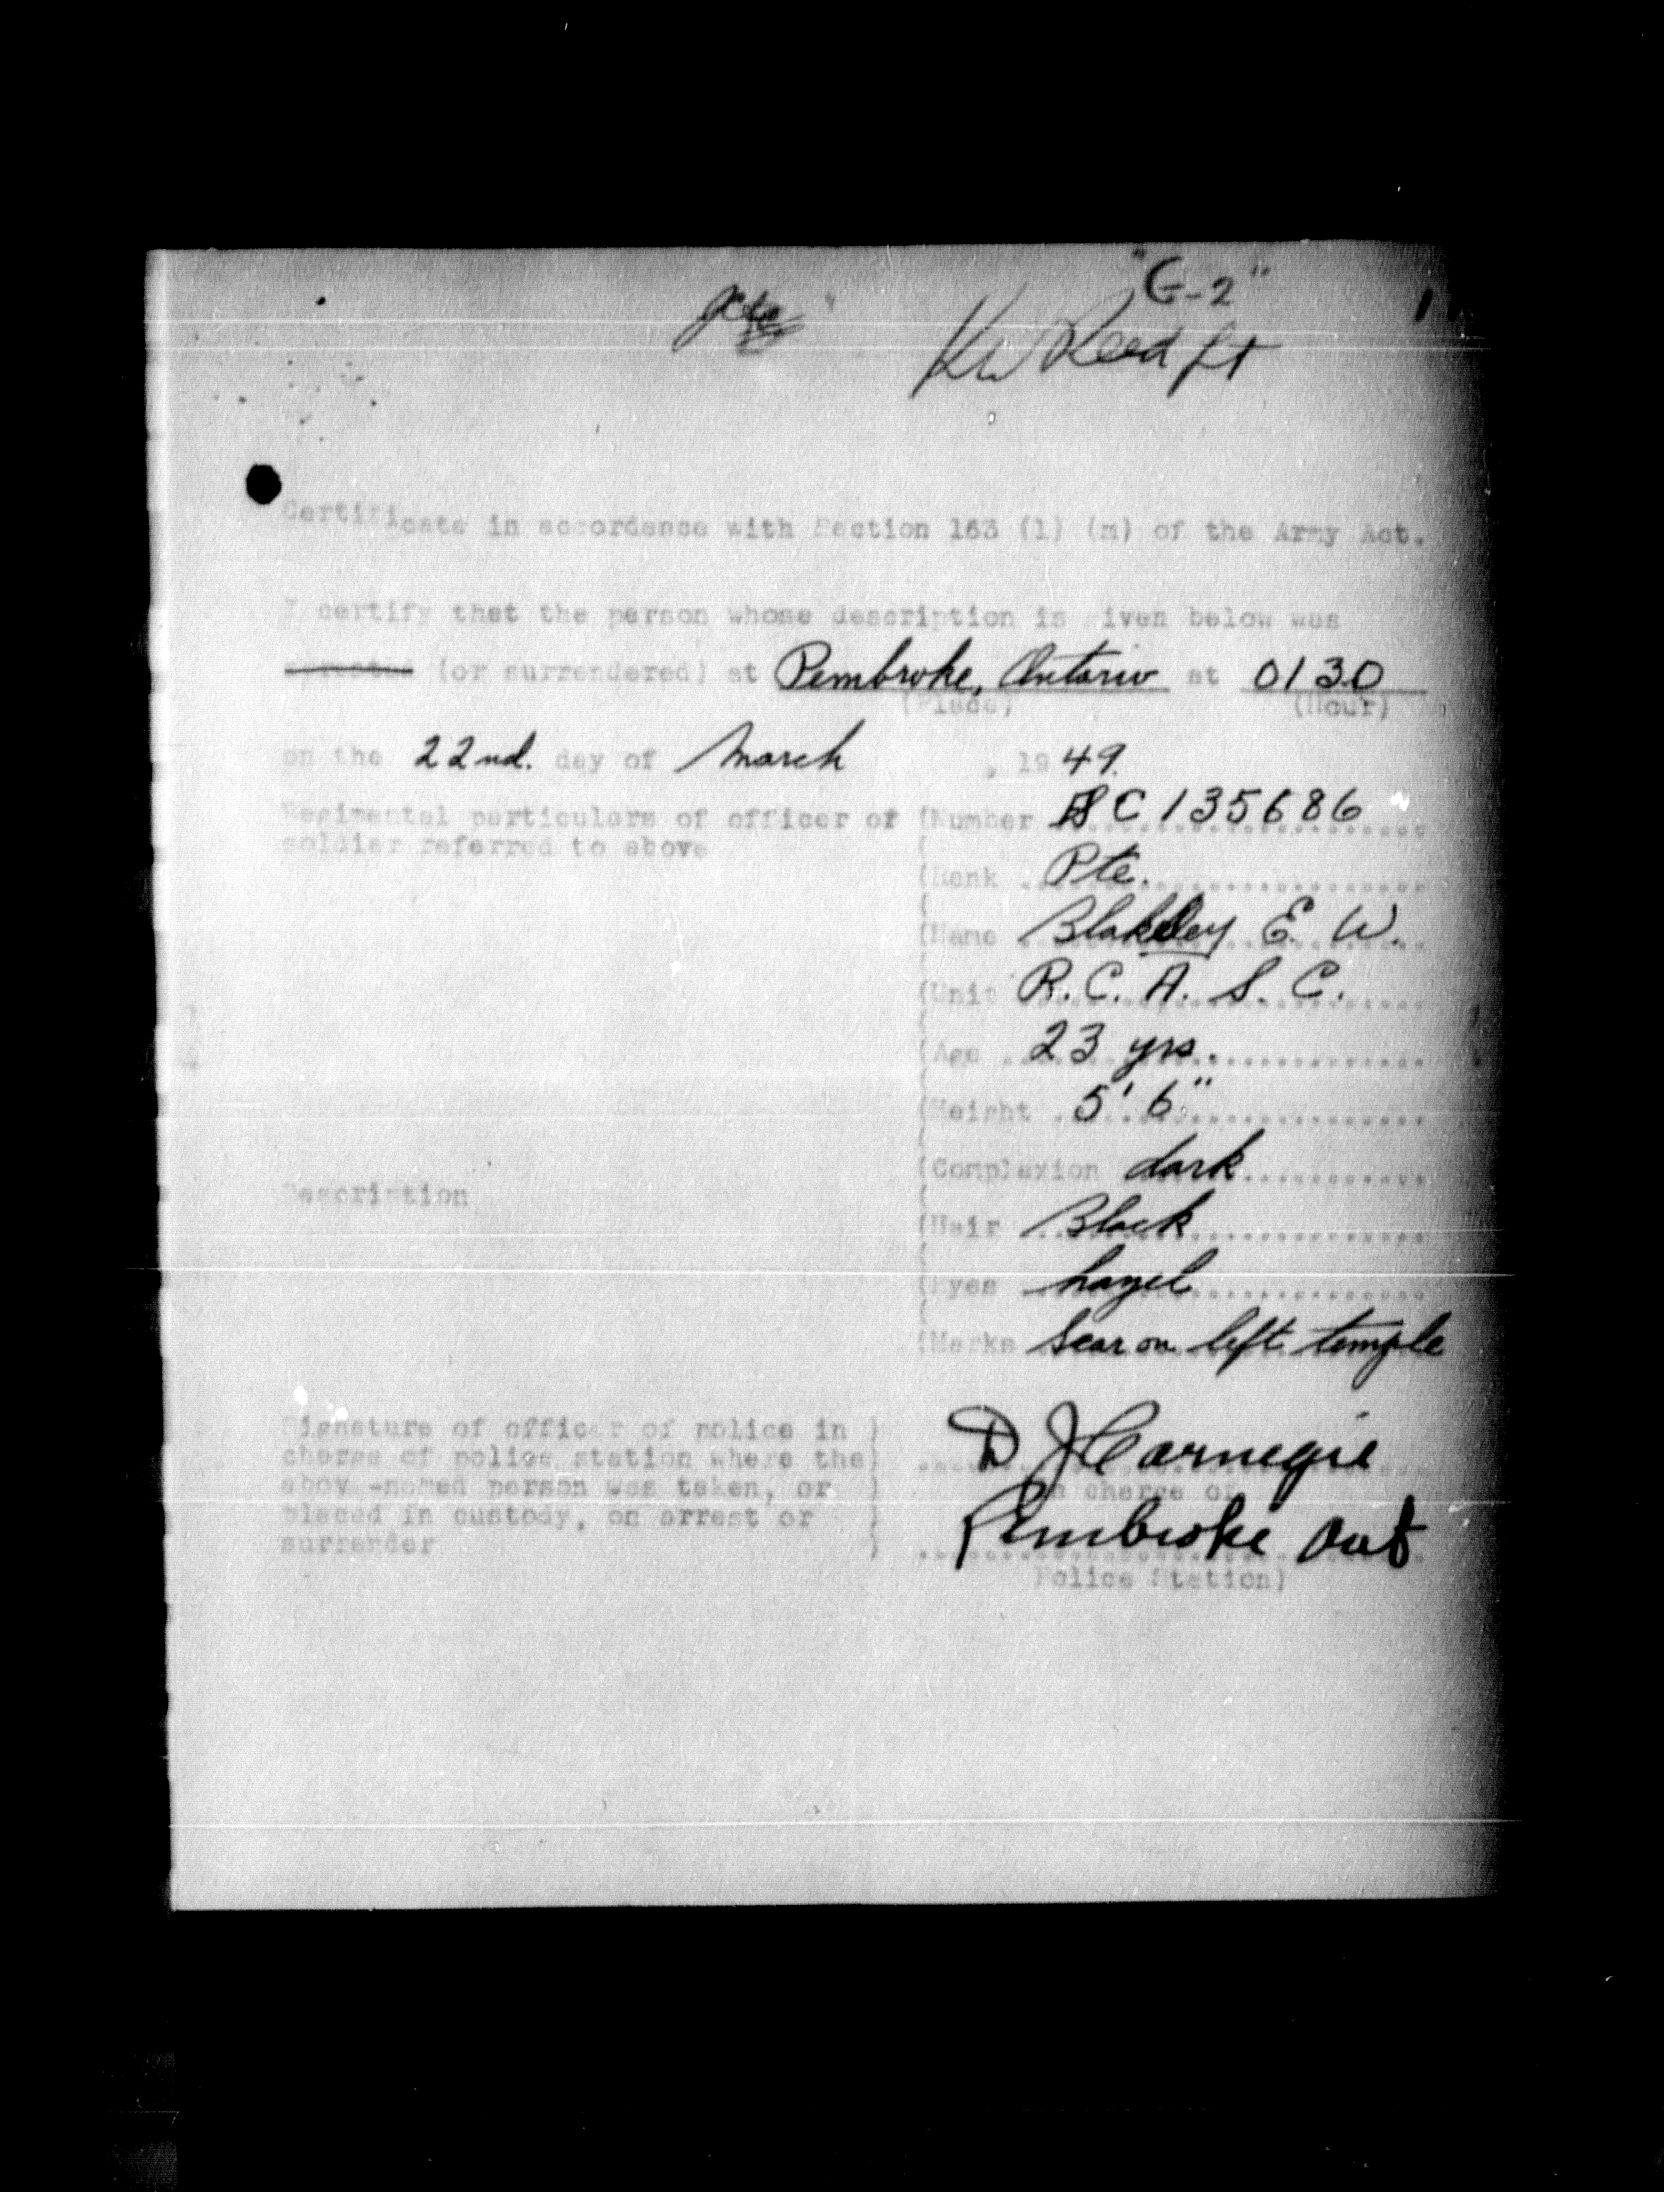 "G-2"
KW Reed Lt
Certificate in accordance with Section 163 (1) (m) of the Army Act.
I certify that the person whose description is given below was
(or surrendered) at Pembroke, Ontario at 0130
(Place) (Hour)
on the 22nd. day of March , 1949.
Regimental particulars of officer or (Number SC 135686
soldier referred to above
(Rank Pte.
(Name Blakeley E. W.
(Unit R. C. A. S. C.
(Age 23 yrs.
(Height 5' 6"
(Complexion dark
Description
(Hair Black
(Eyes hazel
(Marks Scar on left temple
Signature of officer of police in )
charge of police station where the) D J Carnegie
above-named person was taken, or ) In charge of
placed in custody, on arrest or ) Pembroke Ont
surrender )
Police Station)